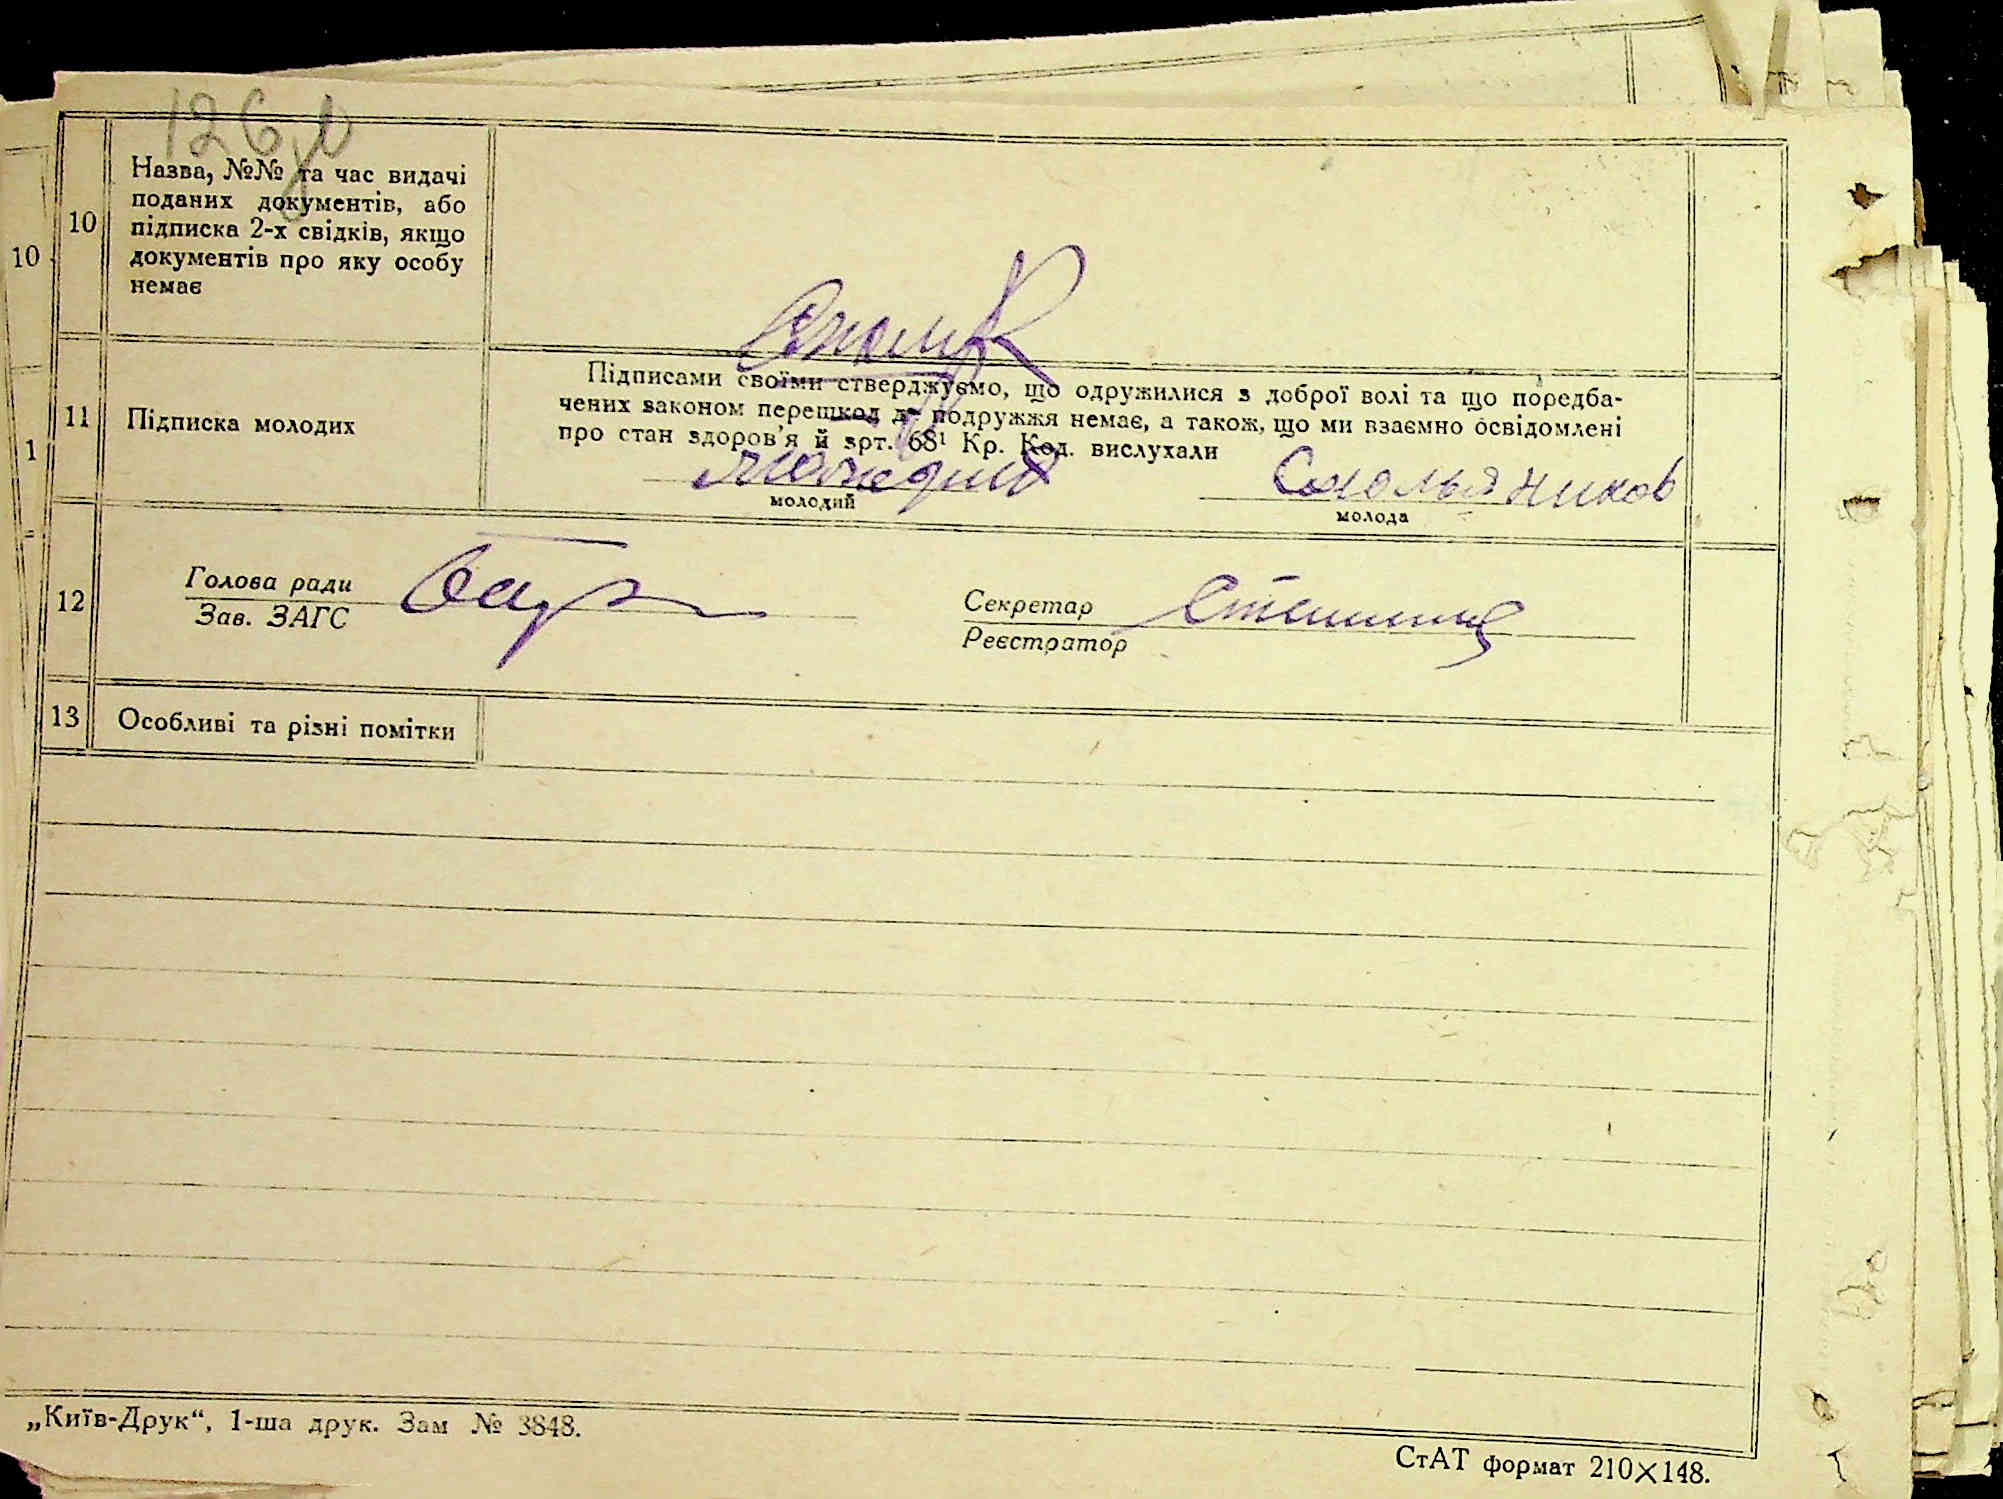 126 зв
10
10
Назва, №№ та час видачі
поданих документів, або
підписка 2-х свідків, якщо
документів про яку особу
немає
1
11
Підписка молодих
Підписами своїми стверджуємо, що одружилися з доброї волі та що поредба-
чених законом перешкод до подружжя немає, а також, що ми взаємно освідомлені
про стан здоров'я й арт. 68¹ Кр. Код. вислухали
Смольяников
молодий
молода
12
Голова ради
Зав. ЗАГС
Секретар
Реєстратор
13
Особливі та різні помітки
„Київ-Друк“, 1-ша друк. Зам № 3848.
СтАТ формат 210×148.